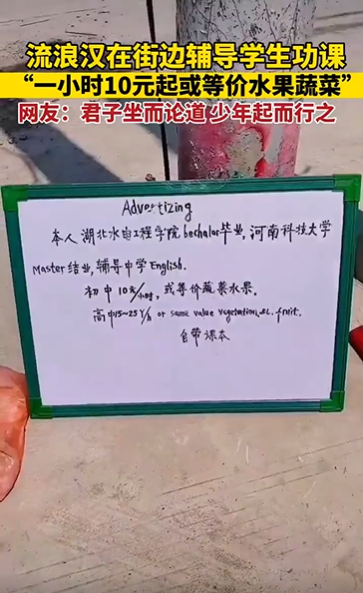 流浪汉在街边辅导学生功课
“一小时10元起或等价水果蔬菜”
网友：君子坐而论道 少年起而行之
Advertizing
本人湖北水电工程学院bechalor毕业,河南科技大学
Master结业,辅导中学English.
初中10元/小时,或等价蔬菜水果.
高中15~25 Y/h or same value vegetation, &c. fruit.
自带课本